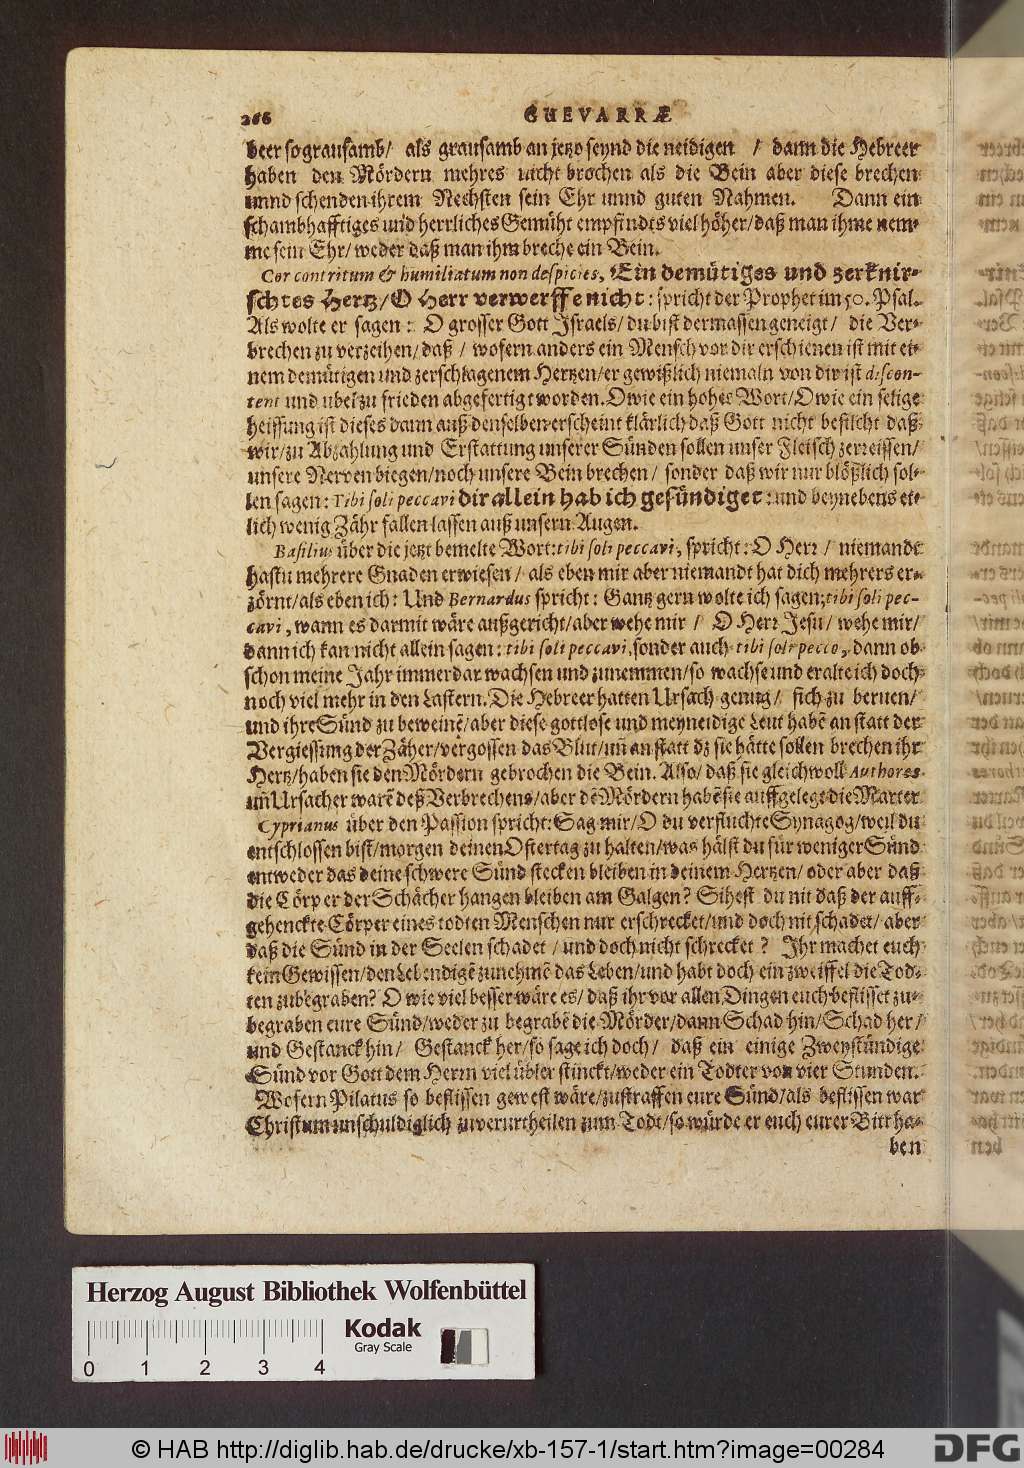 266 GUEVARRÆ
beer so grausamb/ als grausamb an jetzo seynd die neidigen / dann die Hebreer
haben den Mördern mehres nicht brochen als die Bein aber diese brechen
unnd schenden ihrem Nechsten sein Ehr unnd guten Nahmen. Dann ein
schambhafftiges und herrliches Gemüht empfindts viel höher/daß man ihme nem-
me sein Ehr/weder daß man ihm breche ein Bein.
Cor contritum & humiliatum non despicies, Ein demütiges und zerknir-
schtes Hertz/O Herr verwerffe nicht: spricht der Prophet im 50. Psal.
Als wolte er sagen: O grosser Gott Israels/du bist dermassen geneigt/ die Ver-
brechen zu verzeihen/daß / wofern anders ein Mensch vor dir erschienen ist mit ei-
nem demütigen und zerschlagenem Hertzen/er gewißlich niemaln von dir ist discon-
tent und ubel zu frieden abgefertigt worden. O wie ein hohes Wort/O wie ein selige
heissung ist dieses dann auß denselben erscheint klärlich daß Gott nicht besilcht daß
wir/zu Abzahlung und Erstattung unserer Sünden sollen unser Fleisch zerreissen/
unsere Nerven biegen/noch unsere Bein brechen/ sonder daß wir nur blößlich sol-
len sagen: Tibi soli peccavi dir allein hab ich gesündiget: und beynebens et-
lich wenig Zähr fallen lassen auß unsern Augen.
Basilius über die jetzt bemelte Wort: tibi soli peccavi, spricht: O Herr/ niemandt
hastu mehrere Gnaden erwiesen/ als eben mir aber niemandt hat dich mehrers er-
zörnt/als eben ich: Und Bernardus spricht: Gantz gern wolte ich sagen, tibi soli pec-
cavi, wann es darmit wäre außgericht/aber wehe mir / O Herr Jesu/ wehe mir/
dann ich kan nicht allein sagen: tibi soli peccavi, sonder auch tibi soli pecco, dann ob
schon meine Jahr immerdar wachsen und zunemmen/so wachse und eralte ich doch
noch viel mehr in den Lastern. Die Hebreer hatten Ursach genug/ sich zu beruen/
und ihre Sünd zu beweinē/aber diese gottlose und meyneidige Leut habē an statt der
Vergiessung der Zäher/vergossen das Blut/un̄ an statt dz sie hätte sollen brechen ihr
Hertz/haben sie den Mördern gebrochen die Bein. Also/daß sie gleichwoll Authores
un̄ Ursacher warē deß Verbrechens/aber dē Mördern habē sie auffgelegt die Marter
Cyprianus über den Passion spricht: Sag mir/O du verfluchte Synagog/weil du
entschlossen bist/morgen deinen Ostertag zu halten/was hälst du für weniger Sünd
entweder das deine schwere Sünd stecken bleiben in deinem Hertzen/oder aber daß
die Cörper der Schächer hangen bleiben am Galgen? Sihest du nit daß der auff-
gehenckte Cörper eines todten Menschen nur erschrecket/und doch nit schadet/ aber
daß die Sünd in der Seelen schadet / und doch nicht schrecket? Ihr machet euch
kein Gewissen/den Lebendigē zunehmē das Leben/und habt doch ein zweiffel die Tod-
ten zubegraben? O wie viel besser wäre es/ daß ihr vor allen Dingen euch beflisset zu-
begraben eure Sünd/weder zu begrabē die Mörder/dann Schad hin/Schad her/
und Gestanck hin/ Gestanck her/so sage ich doch/ daß ein einige Zweystündige
Sünd vor Gott dem Herrn viel übler stinckt/weder ein Todter von vier Stunden.
Wofern Pilatus so beflissen gewest wäre/zustraffen eure Sünd/als beflissen war
Christum unschuldiglich zuverurtheilen zum Todt/so würde er euch eurer Bitt ha-
ben
Herzog August Bibliothek Wolfenbüttel
Kodak
Gray Scale
0 1 2 3 4
© HAB http://diglib.hab.de/drucke/xb-157-1/start.htm?image=00284
DFG